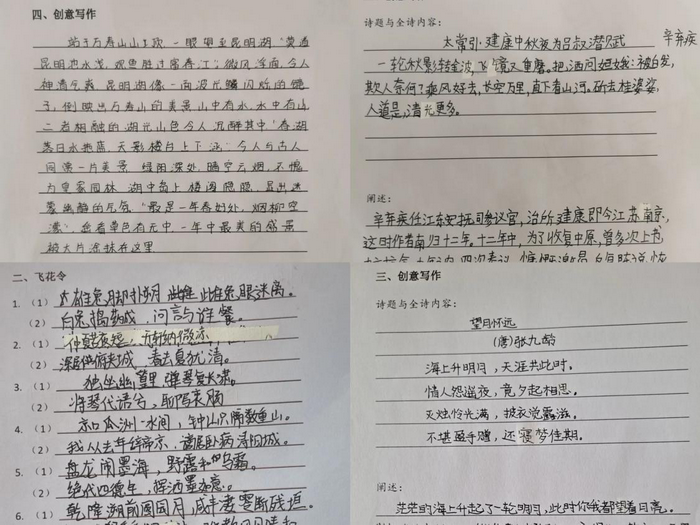 四、创意写作
站于万寿山山坡,一眼望至昆明湖,"黄道
昆明池水浅,观鱼胜过富春江;微风浮面,令人
神清气爽,昆明湖像一面波光鳞闪烁的镜
子,倒映出万寿山的美景,山中有水,水中有山,
二者相融的湖光山色令人沉醉其中"春湖
落日水拖蓝,天影楼台上下涵",令人与古人
同赏一片美景,绿阳深处,晴空云烟,不愧
为皇家园林,湖中岛上楼阁隐隐,显出迷
蒙幽静的气氛"最是一年春好处,烟柳空
漫",
一年中最美的盛景
被大片涂抹在这里
诗题与全诗内容:
太常引·建康中秋夜为吕叔潜赋 辛弃疾
一轮秋影转金波,飞镜又重磨。把酒问姮娥:被白发,
欺人奈何?乘风好去,长空万里,直下看山河。斫去桂婆娑,
人道是,清光更多。
阐述:
辛弃疾任江东安抚司参议官,治所建康即今江苏南京,
这时作者南归十二年。十二年中,为了收复中原,曾多次上书
二、飞花令
1. (1) 雄兔脚扑朔 雌兔眼迷离。
(2) 白兔捣药成,问言与谁餐。
2. (1) 仲夏苦夜短,开轩纳微凉
(2) 深居俯夹城,春去夏犹清。
3. (1) 独坐幽篁里,弹琴复长啸。
(2) 将琴代语兮,聊写衷肠
4. (1) 京口瓜洲一水间,钟山只隔数重山。
(2) 我从去年辞帝京,谪居卧病浔阳城。
5. (1) 盘龙闹墨海,野露和乌霜。
(2) 绝代四德年,挥洒墨
6. (1) 乾隆湖前圆同月,咸丰凄零断残垣。
三、创意写作
诗题与全诗内容:
望月怀远
(唐)张九龄
海上升明月,天涯共此时。
情人怨遥夜,竟夕起相思。
灭烛怜光满,披衣觉露滋。
不堪盈手赠,还寝梦佳期。
阐述:
茫茫的海上升起了一轮明月,此时你我都望着月亮。